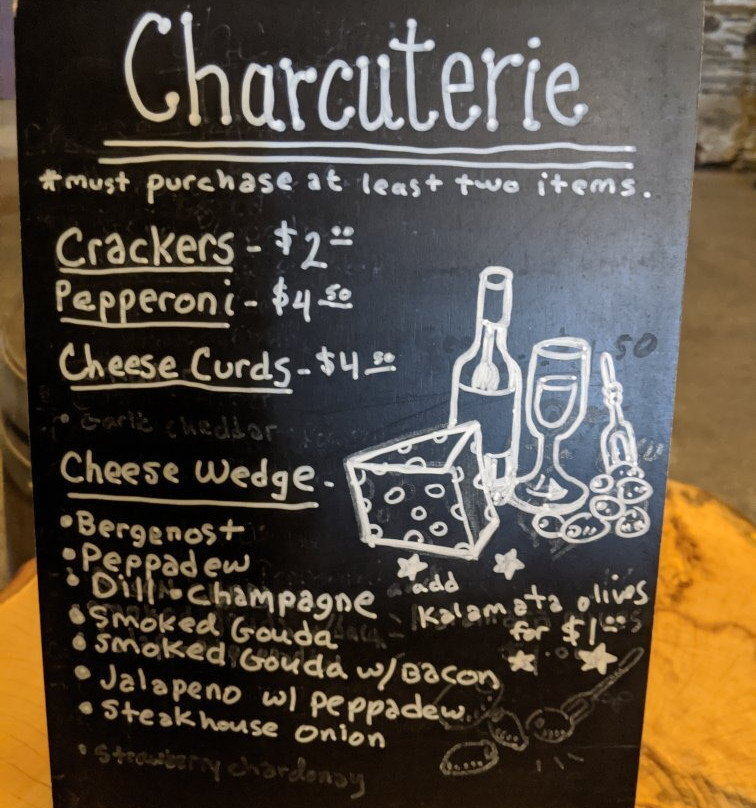 Charcuterie
*must purchase at least two items.
Crackers - $2.00
Pepperoni - $4.50
Cheese Curds - $4.50
50
• Garlic cheddar
Cheese Wedge -
• Bergenost
• Peppadew
• Dill • Champagne
• Smoked Gouda
• Smoked Gouda w/ Bacon
• Jalapeno w/ Peppadew
• Steakhouse Onion
• Strawberry chardonay
add
Kalamata olives
for $1.00